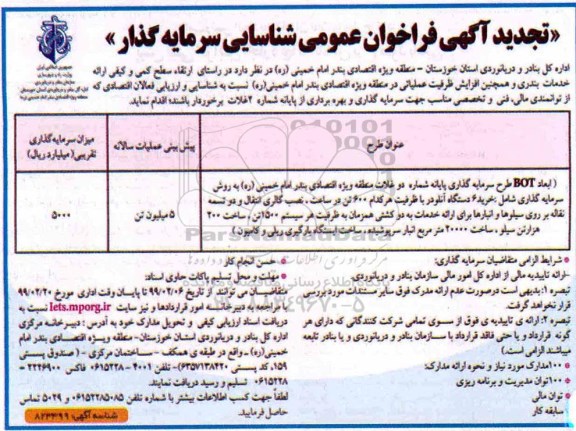 «تجدید آگهی فراخوان عمومی شناسایی سرمایه گذار»
اداره کل بنادر و دریانوردی استان خوزستان – منطقه ویژه اقتصادی بندر امام خمینی (ره) در نظر دارد در راستای ارتقاء سطح کمی و کیفی ارائه
خدمات بندری و همچنین افزایش ظرفیت عملیاتی در منطقه ویژه اقتصادی بندر امام خمینی(ره) نسبت به شناسایی و ارزیابی فعالان اقتصادی که
از توانمندی مالی، فنی و تخصصی مناسب جهت سرمایه گذاری و بهره برداری از پایانه شماره ۲غلات برخوردار باشند؛ اقدام نماید.
عنوان طرح
پیش بینی عملیات سالانه
میزان سرمایه‌گذاری
تقریبی( میلیارد ریال)
( ابعاد BOT طرح سرمایه گذاری پایانه شماره دو غلات منطقه ویژه اقتصادی بندر امام خمینی (ره) به روش
سرمایه گذاری شامل :خرید۶ دستگاه آنلودر با ظرفیت هرکدام ۶۰۰ تن در ساعت، نصب گالری انتقال و دو تسمه
نقاله بر روی سیلوها و انبارها برای ارائه خدمات به دو کشتی همزمان به ظرفیت هر سیستم ۱۵۰۰تن در ساعت، ساخت ۲۰۰
هزارتن سیلو ، ساخت ۲۰۰۰۰ متر مربع انبار سرپوشیده ، ساخت ایستگاه بارگیری ریلی و کامیون )
۵ میلیون تن
۵۰۰۰
ParsNamadData
۰۲۱-۸۸۳۴۹۶۷۰-۵
شرایط الزامی متقاضیان سرمایه گذاری:
-ارائه تاییدیه مالی از اداره کل امور مالی سازمان بنادر و دریانوردی.
تبصره ۱: بدیهی است درصورت عدم ارائه مدرک فوق سایر مستندات موردبررسی
قرار نخواهد گرفت.
تبصره ۲: ارائه ی تاییدیه ی فوق از سوی تمامی شرکت کنندگانی که دارای هر
گونه قرارداد و یا حتی فاقد قرارداد با سازمان بنادر و دریانوردی و یا بنادر تابعه
میباشند الزامی است.)
۱۰۰مدارک مورد نیاز و نحوه ارائه مدارک:
۱۰۰توان مدیریت و برنامه ریزی
توان مالی
سابقه کار
حسن انجام کار
مهلت و محل تسلیم پاکات حاوی اسناد:
متقاضیان می توانند از تاریخ ۹۹/۰۲/۰۶ تا پایان وقت اداری مورخ ۹۹/۰۲/۲۰
با مراجعه به دبیرخانه امور قراردادها و نیز سایت iets.mporg.ir نسبت به
دریافت اسناد ارزیابی کیفی و تحویل مدارک خود به آدرس : دبیرخانه مرکزی
اداره کل بنادر و دریانوردی استان خوزستان- منطقه ویژه اقتصادی بندر امام
خمینی(ره) ـ واقع در طبقه ی همکف – ساختمان مرکزی – (صندوق پستی
۱۵۹، کد پستی ۶۳۵۷۱۳۸۴۲۰)- تلفن ۴۰۰۱ – ۰۶۱۵۲۲۸ فاکس ۲۲۴۶۹۰۰ –
۰۶۱۵۲۲۸ تسلیم و رسید دریافت نمایند.
لطفاً جهت کسب اطلاعات بیشتر با شماره تلفن ۰۶۱۵۲۲۸۵۰۸۵ و ۵۰۲۹ تماس
حاصل فرمایید.
شناسه آگهی: ۸۲۳۳۹۹